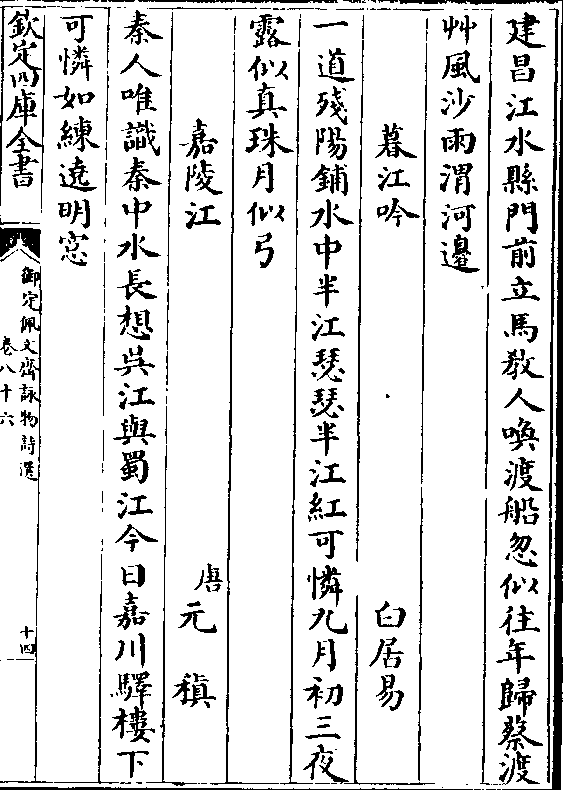 建昌江水縣門前立馬教人喚渡船忽似往年歸蔡渡
艸風沙雨渭河邊
暮江吟　白居易
一道殘陽鋪水中半江瑟瑟半江紅可憐九月初三夜
露似真珠月似弓
嘉陵江　唐元稹
秦人唯識秦中水長想吳江與蜀江今日嘉川驛樓下
可憐如練遶明窓
欽定四庫全書
御定佩文齋詠物詩選
卷八十六
十四